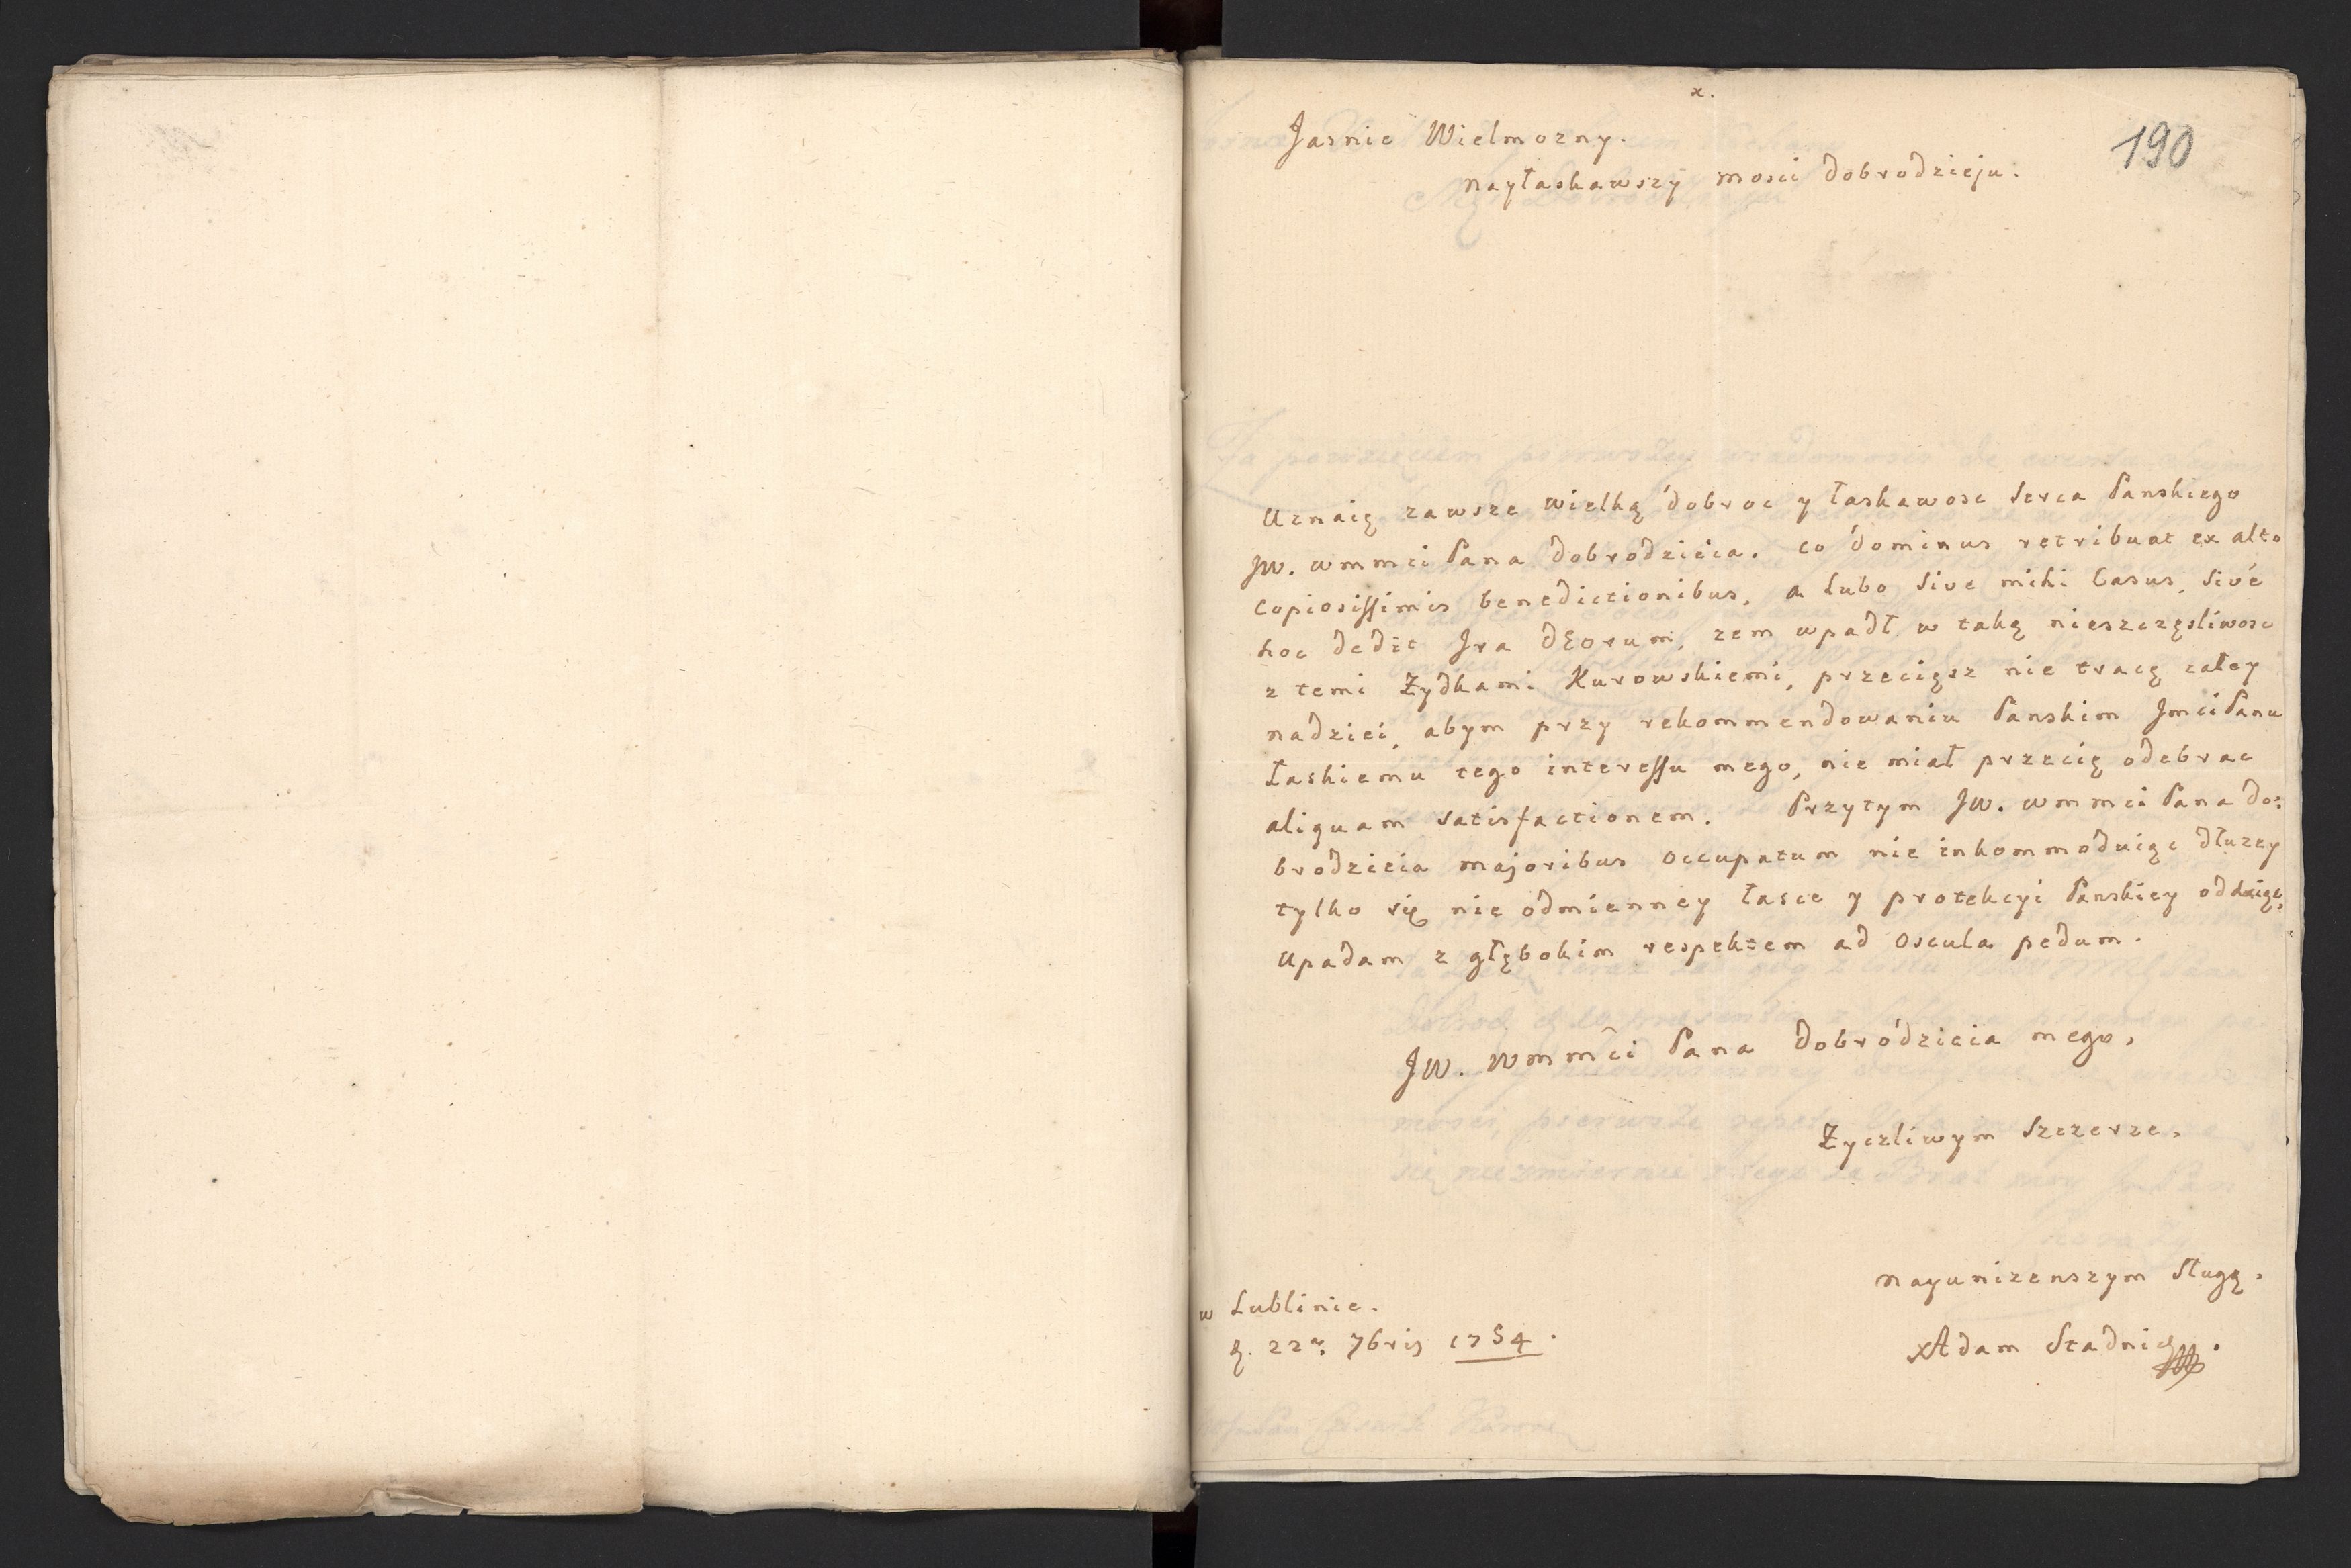 x.
190
Jasnie Wielmozny.
nayłaskawszy mosci dobrodzieju.
Uznaię zawsze wielką dobroc y łaskawosc Serca Panskiego
JW. wmmci Pana dobrodzieia. co dominus retribuat ex alto
copiosissimis benedictionibus, a lubo Sive mihi Casus, Sive
hoc dedit Ira dEorum, zem wpadł w taką nieszczęsliwosc
z temi Zydkami Kurowskiemi, przeciesz nie tracę całey
nadziei, abym przy rekommendowaniu Panskim Jmci Panu
Łaskiemu tego interessu mego, nie miał przecię odebrac
aliquam satisfactionem. Przytym JW. wmmci Pana do:
brodzieia majoribus occupatum nie inkommoduiąc dłuzey
tylko się nie odmienney łasce y protekcyi Panskiey oddaiąc,
upadam z głębokim respektem ad oscula pedum.
JW. wmmci Pana dobrodzieia mego,
Zyczliwym Szczerze,
nayunizenszym Sługą,
w Lublinie.
22a 7bris 1754.
xAdam Stadnicki.